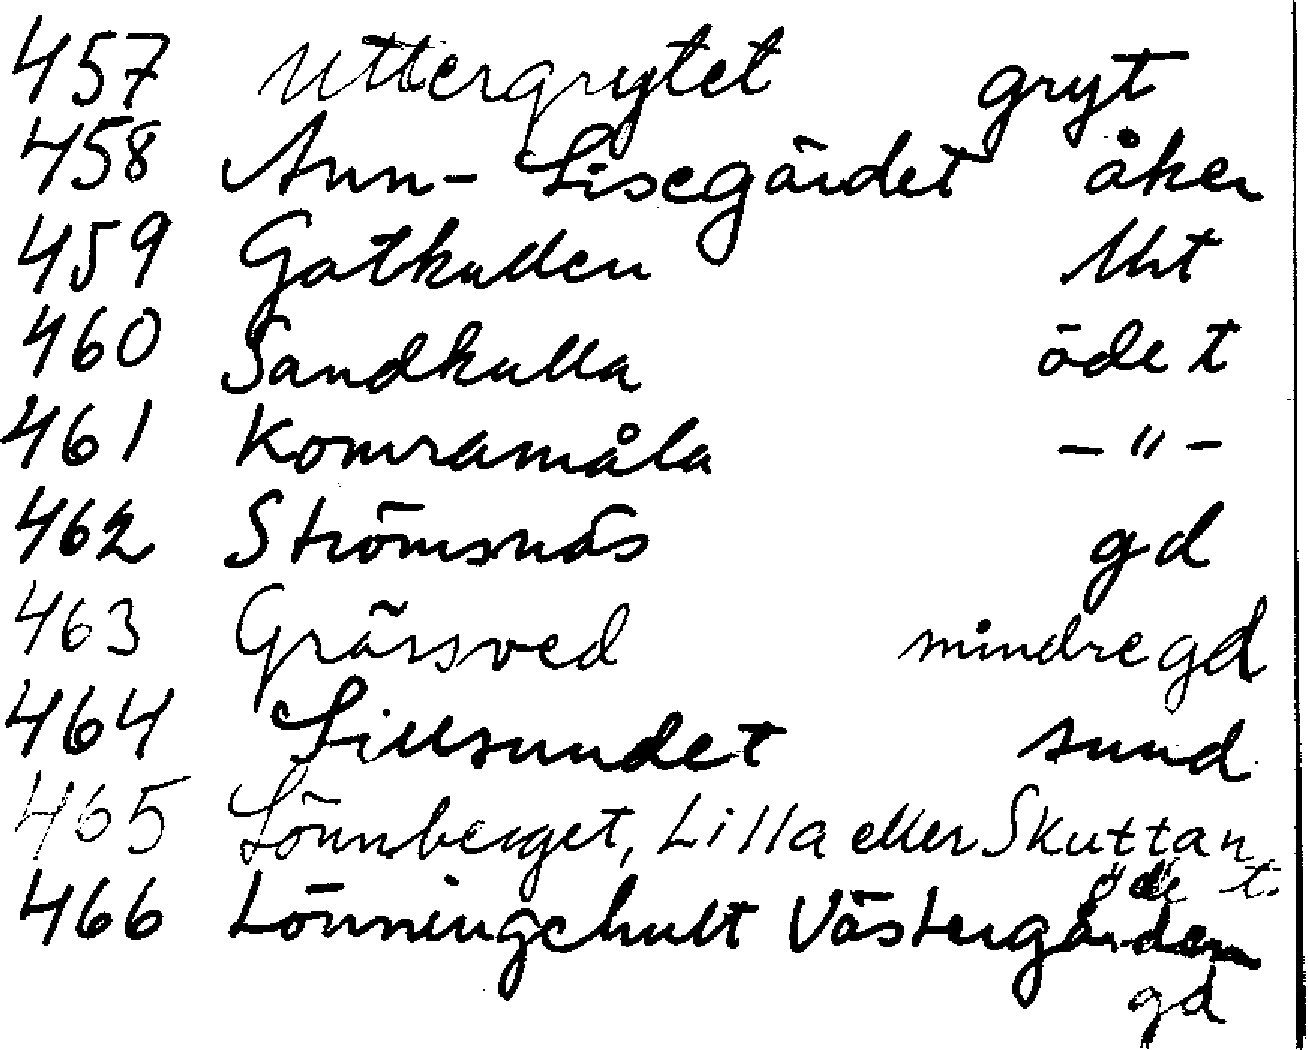 457 Uttergrytet gryt
458 Ann-Lisegärdet åker
459 Gatkullen Uht
460 Sandkulla öde t
461 Komramåla -"-
462 Strömsnäs gd
463 Grässved mindre gd
464 Lillsundet sund
465 Lönnberget, Lilla eller Skuttan
öde t.
466 Lönningehult Västergården
gd